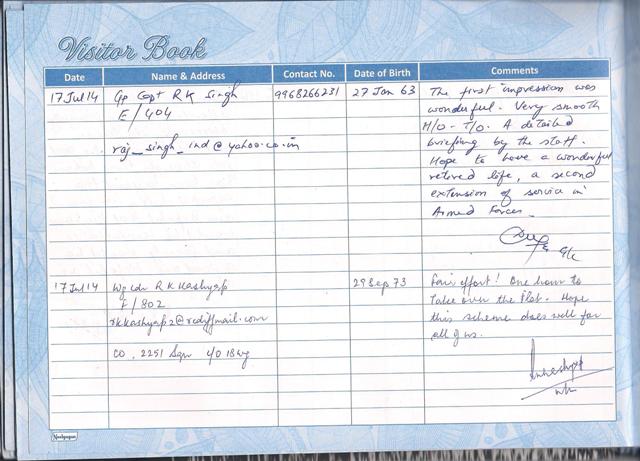 Visitor Book
Date Name & Address Contact No. Date of Birth Comments
17 Jul 14 Gp Capt R K Singh 9968266231 27 Jan 63 The first impression was
E/404 wonderful. Very smooth
H/O - T/O. A detailed
raj_singh_ind@yahoo.co.in briefing by the staff.
Hope to have a wonderful
retired life, a second
extension of service in
Armed Forces.
17 Jul 14 Wg Cdr R K Kashyap 29 Sep 73 Fair effort! One hour to
F/802 take over the flat. Hope
rkkashyap2@rediffmail.com this scheme does well for
all of us.
CO, 2251 Sqn c/o 18 Wg
Neelgagan